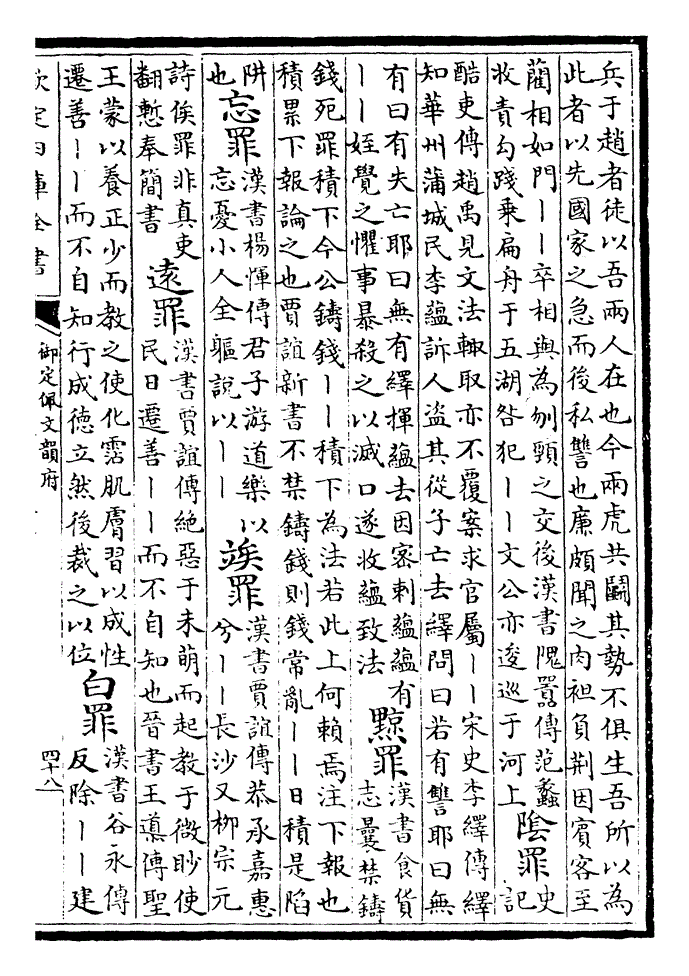 兵于趙者徒以吾兩人在也今兩虎共鬭其勢不俱生吾所以為
此者以先國家之急而後私讐也廉頗聞之肉袒負荆因賓客至
藺相如門丨丨卒相與為刎頸之交後漢書隗囂傳范蠡
收責勾踐乘扁舟于五湖咎犯丨丨文公亦逡巡于河上
陰罪
史
記
酷吏傳趙禹見文法輙取亦不覆案求官屬丨丨宋史李繹傳繹
知華州蒲城民李蘊訴人盜其從子亡去繹問曰若有讐耶曰無
有曰有失亡耶曰無有繹揮蘊去因密刺蘊蘊有
丨丨姪覺之懼事暴殺之以滅口遂收蘊致法
黥罪
漢書食貨
志曩禁鑄
錢死罪積下今公鑄錢丨丨積下為法若此上何賴焉注下報也
積累下報論之也賈誼新書不禁鑄錢則錢常亂丨丨日積是陷
阱
也
忘罪
漢書楊惲傳君子游道樂以
忘憂小人全軀說以丨丨
竢罪
漢書賈誼傳恭承嘉惠
兮丨丨長沙又柳宗元
詩俟罪非真吏
翻慙奉簡書
遠罪
漢書賈誼傳絶惡于未萌而起教于微眇使
民日遷善丨丨而不自知也晉書王導傳聖
王蒙以養正少而教之使化霑肌膚習以成性
遷善丨丨而不自知行成徳立然後裁之以位
白罪
漢書谷永傳
反除丨丨建
欽定四庫全書
御定佩文韻府
四十八